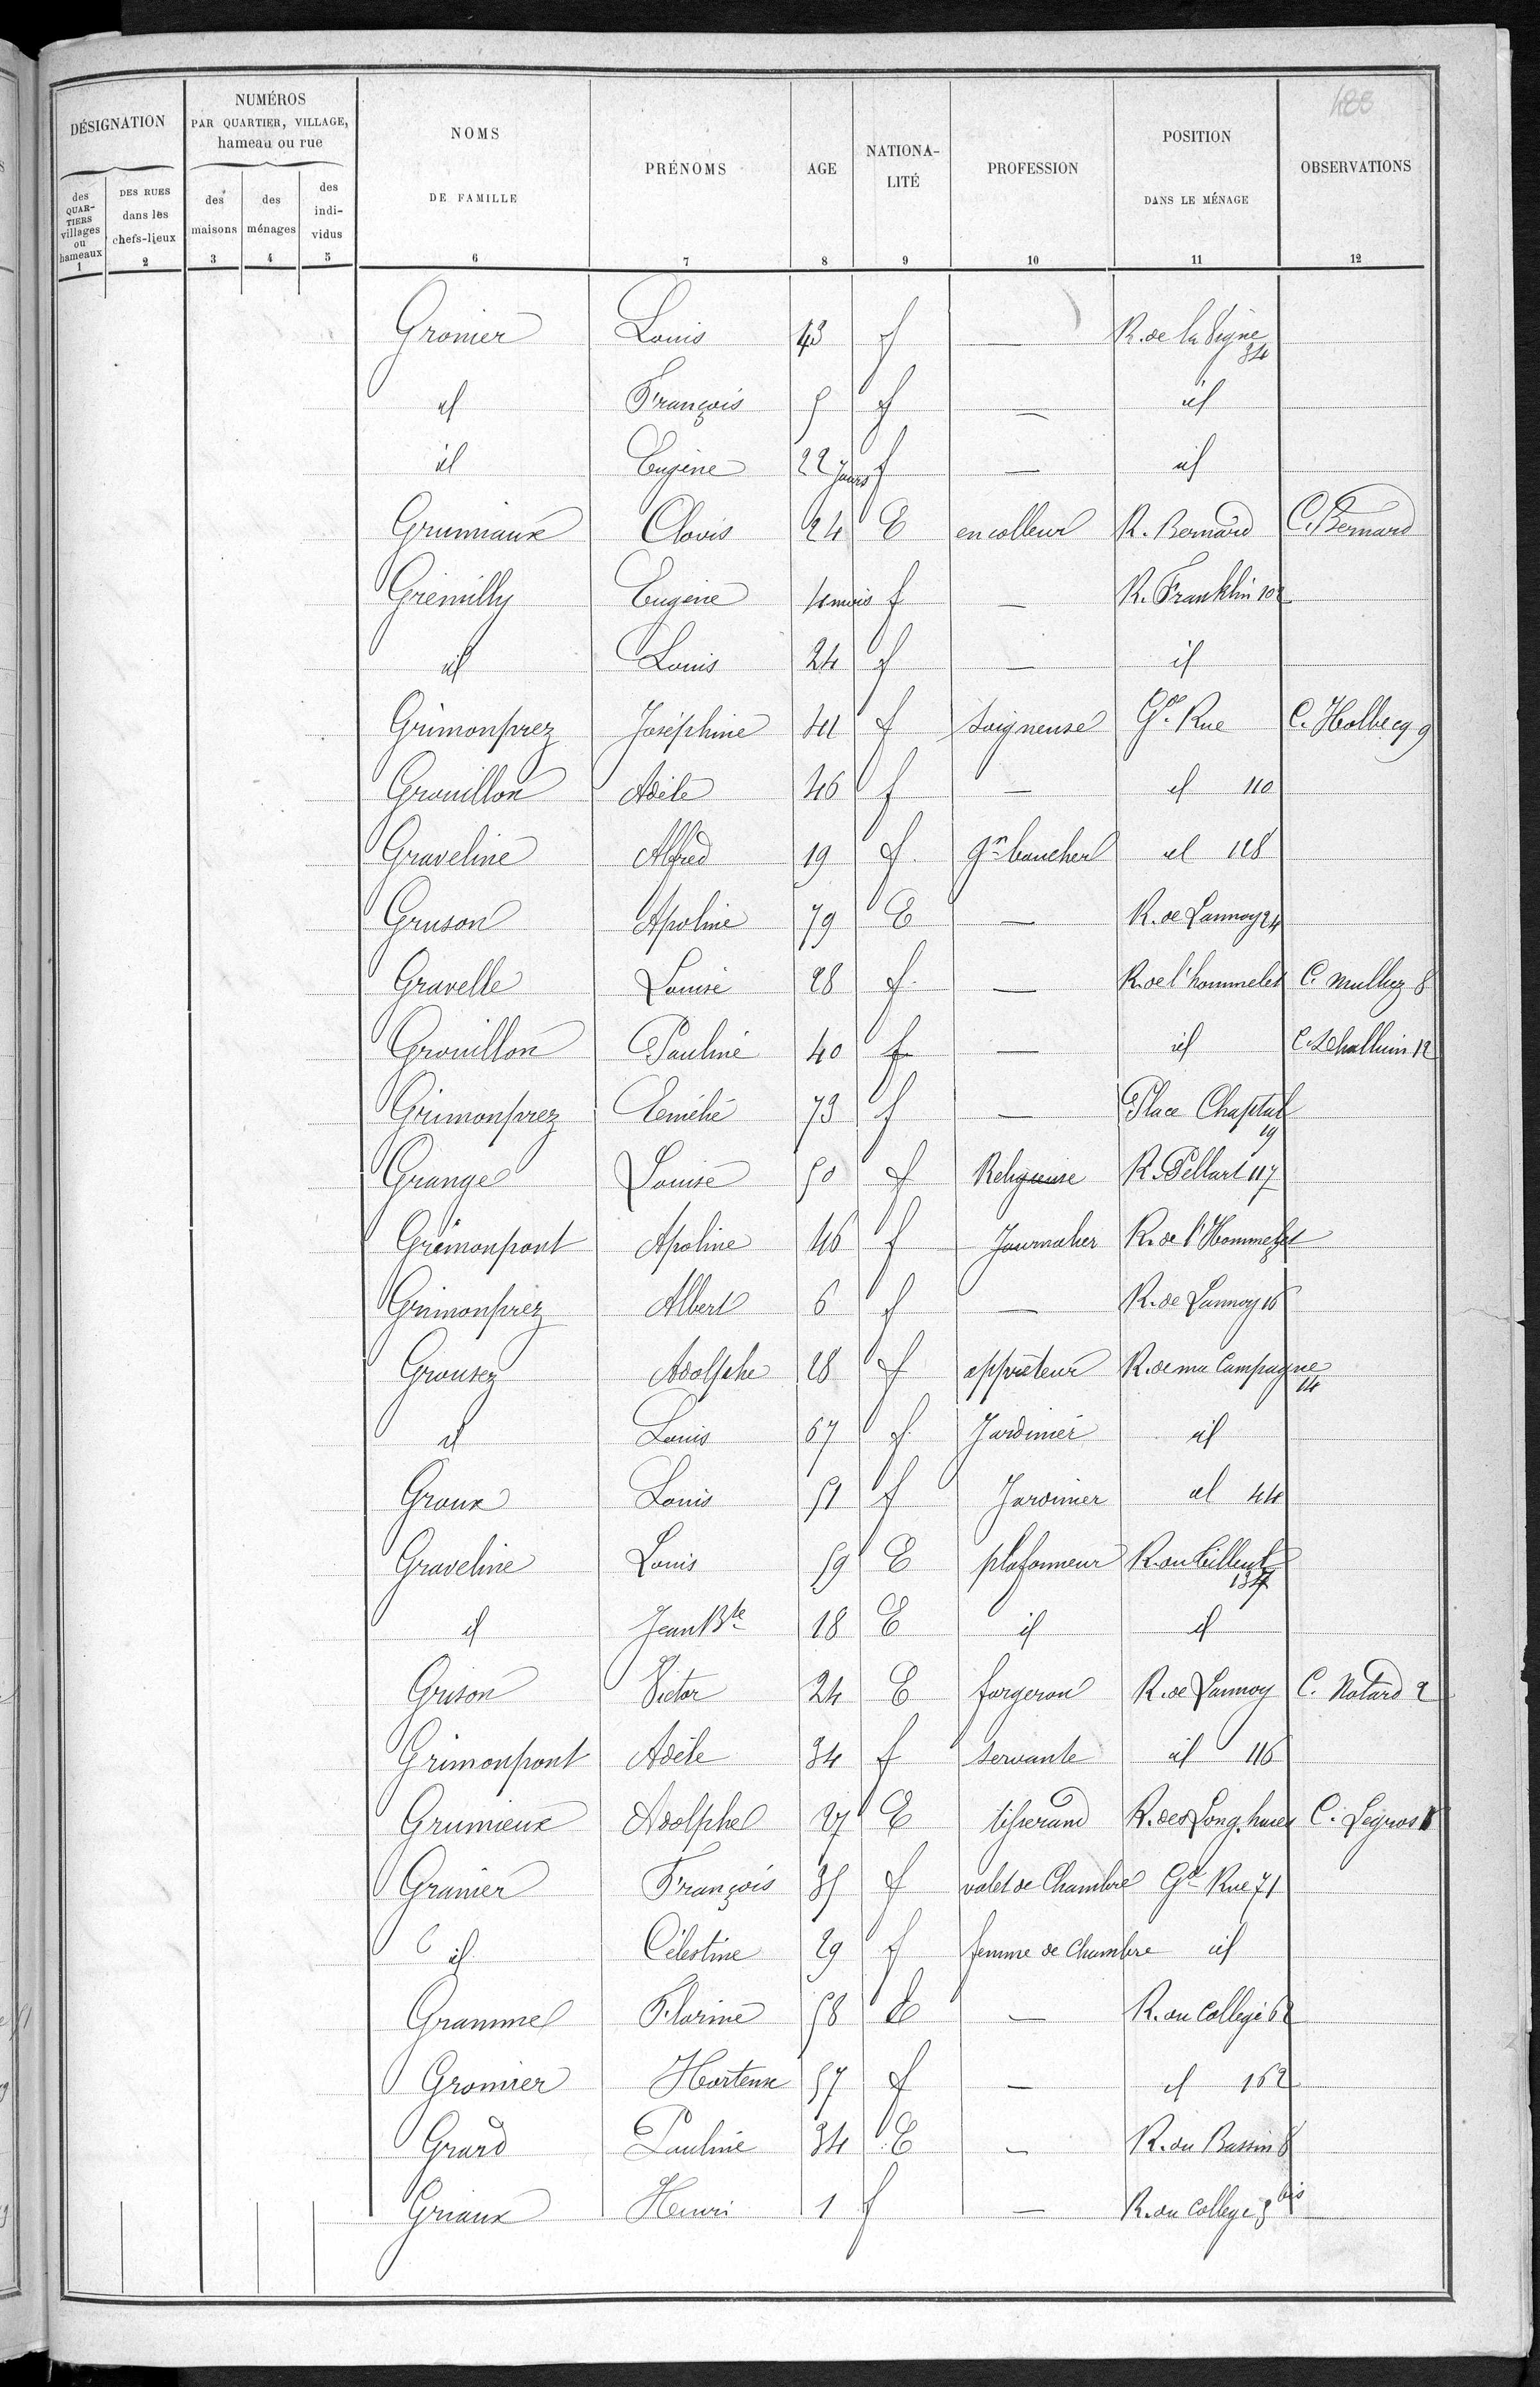 488
DÉSIGNATION
NUMÉROS
PAR QUARTIER, VILLAGE,
hameau ou rue
NOMS
DE FAMILLE
PRÉNOMS
AGE
NATIONA-
LITÉ
PROFESSION
POSITION
DANS LE MÉNAGE
OBSERVATIONS
des
QUAR-
TIERS
villages
ou
hameaux
DES RUES
dans les
chefs-lieux
des
maisons
des
ménages
des
indi-
vidus
1 2 3 4 5 6 7 8 9 10 11 12
Gronier Louis 43 f — R. de la Vigne 34
id François 5 f — id
id Eugène 22 jours f — id
Grumiaux Clovis 24 E encolleur R. Bernard C. Bernard
Grémilly Eugène 4 mois f — R. Franklin 102
id Louis 24 f — id
Grimonprez Joséphine 41 f soigneuse Gde Rue C. Holbecq 9
Grouillon Adèle 46 f — id 110
Graveline Alfred 19 f. gn boucher id 118
Gruson Apoline 79 E — R. de Lannoy 24
Gravelle Louise 28 f. — R. de l'hommelet C. Mulliez 8
Grouillon Pauline 40 f — id C. Dhalluin 12
Grimonprez Eméhé 73 f — Place Chaptal 19
Grange Louise 50 f Religieuse R. Pellart 117
Grimonpont Apoline 46 f Journalier R. de l'Hommelet
Grimonprez Albert 6 f — R. de Lannoy 16
Grousez Adolphe 28 f apprêteur R. de ma Campagne 14
id Louis 67 f. Jardinier id
Groux Louis 51 f Jardinier id 44
Graveline Louis 59 E plafonneur R. du Tilleul 134
id Jean Bte 18 E id id
Grison Victor 24 E forgeron R. de Lannoy C. Notard 2
Grimonpont Adèle 34 f servante id 116
Grumieux Adolphe 27 E tisserand R. des Long. haies C. Legros
Granier François 35 f valet de Chambre Gde Rue 71
id Célestine 29 f femme de Chambre id
Grammel Florine 58 E — R. du Collège 62
Gromier Hortense 57 f — id 162
Grard Pauline 34 E — R. du Bassin 8
Griaux Henri 1 f — R. du College 3 bis